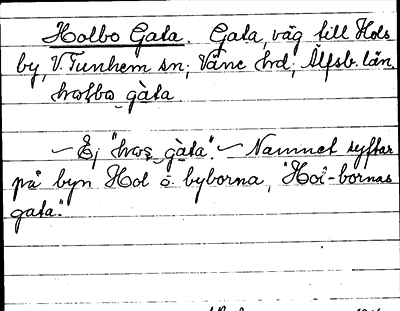 Holbo Gata. Gata, väg till Hols
by, V. Tunhem sn; Väne hd; Älfsb. län.
gàta
Ej "hws gàta". Namnet syftar
på byn Hol o. byborna, "Hol-bornas
gata."